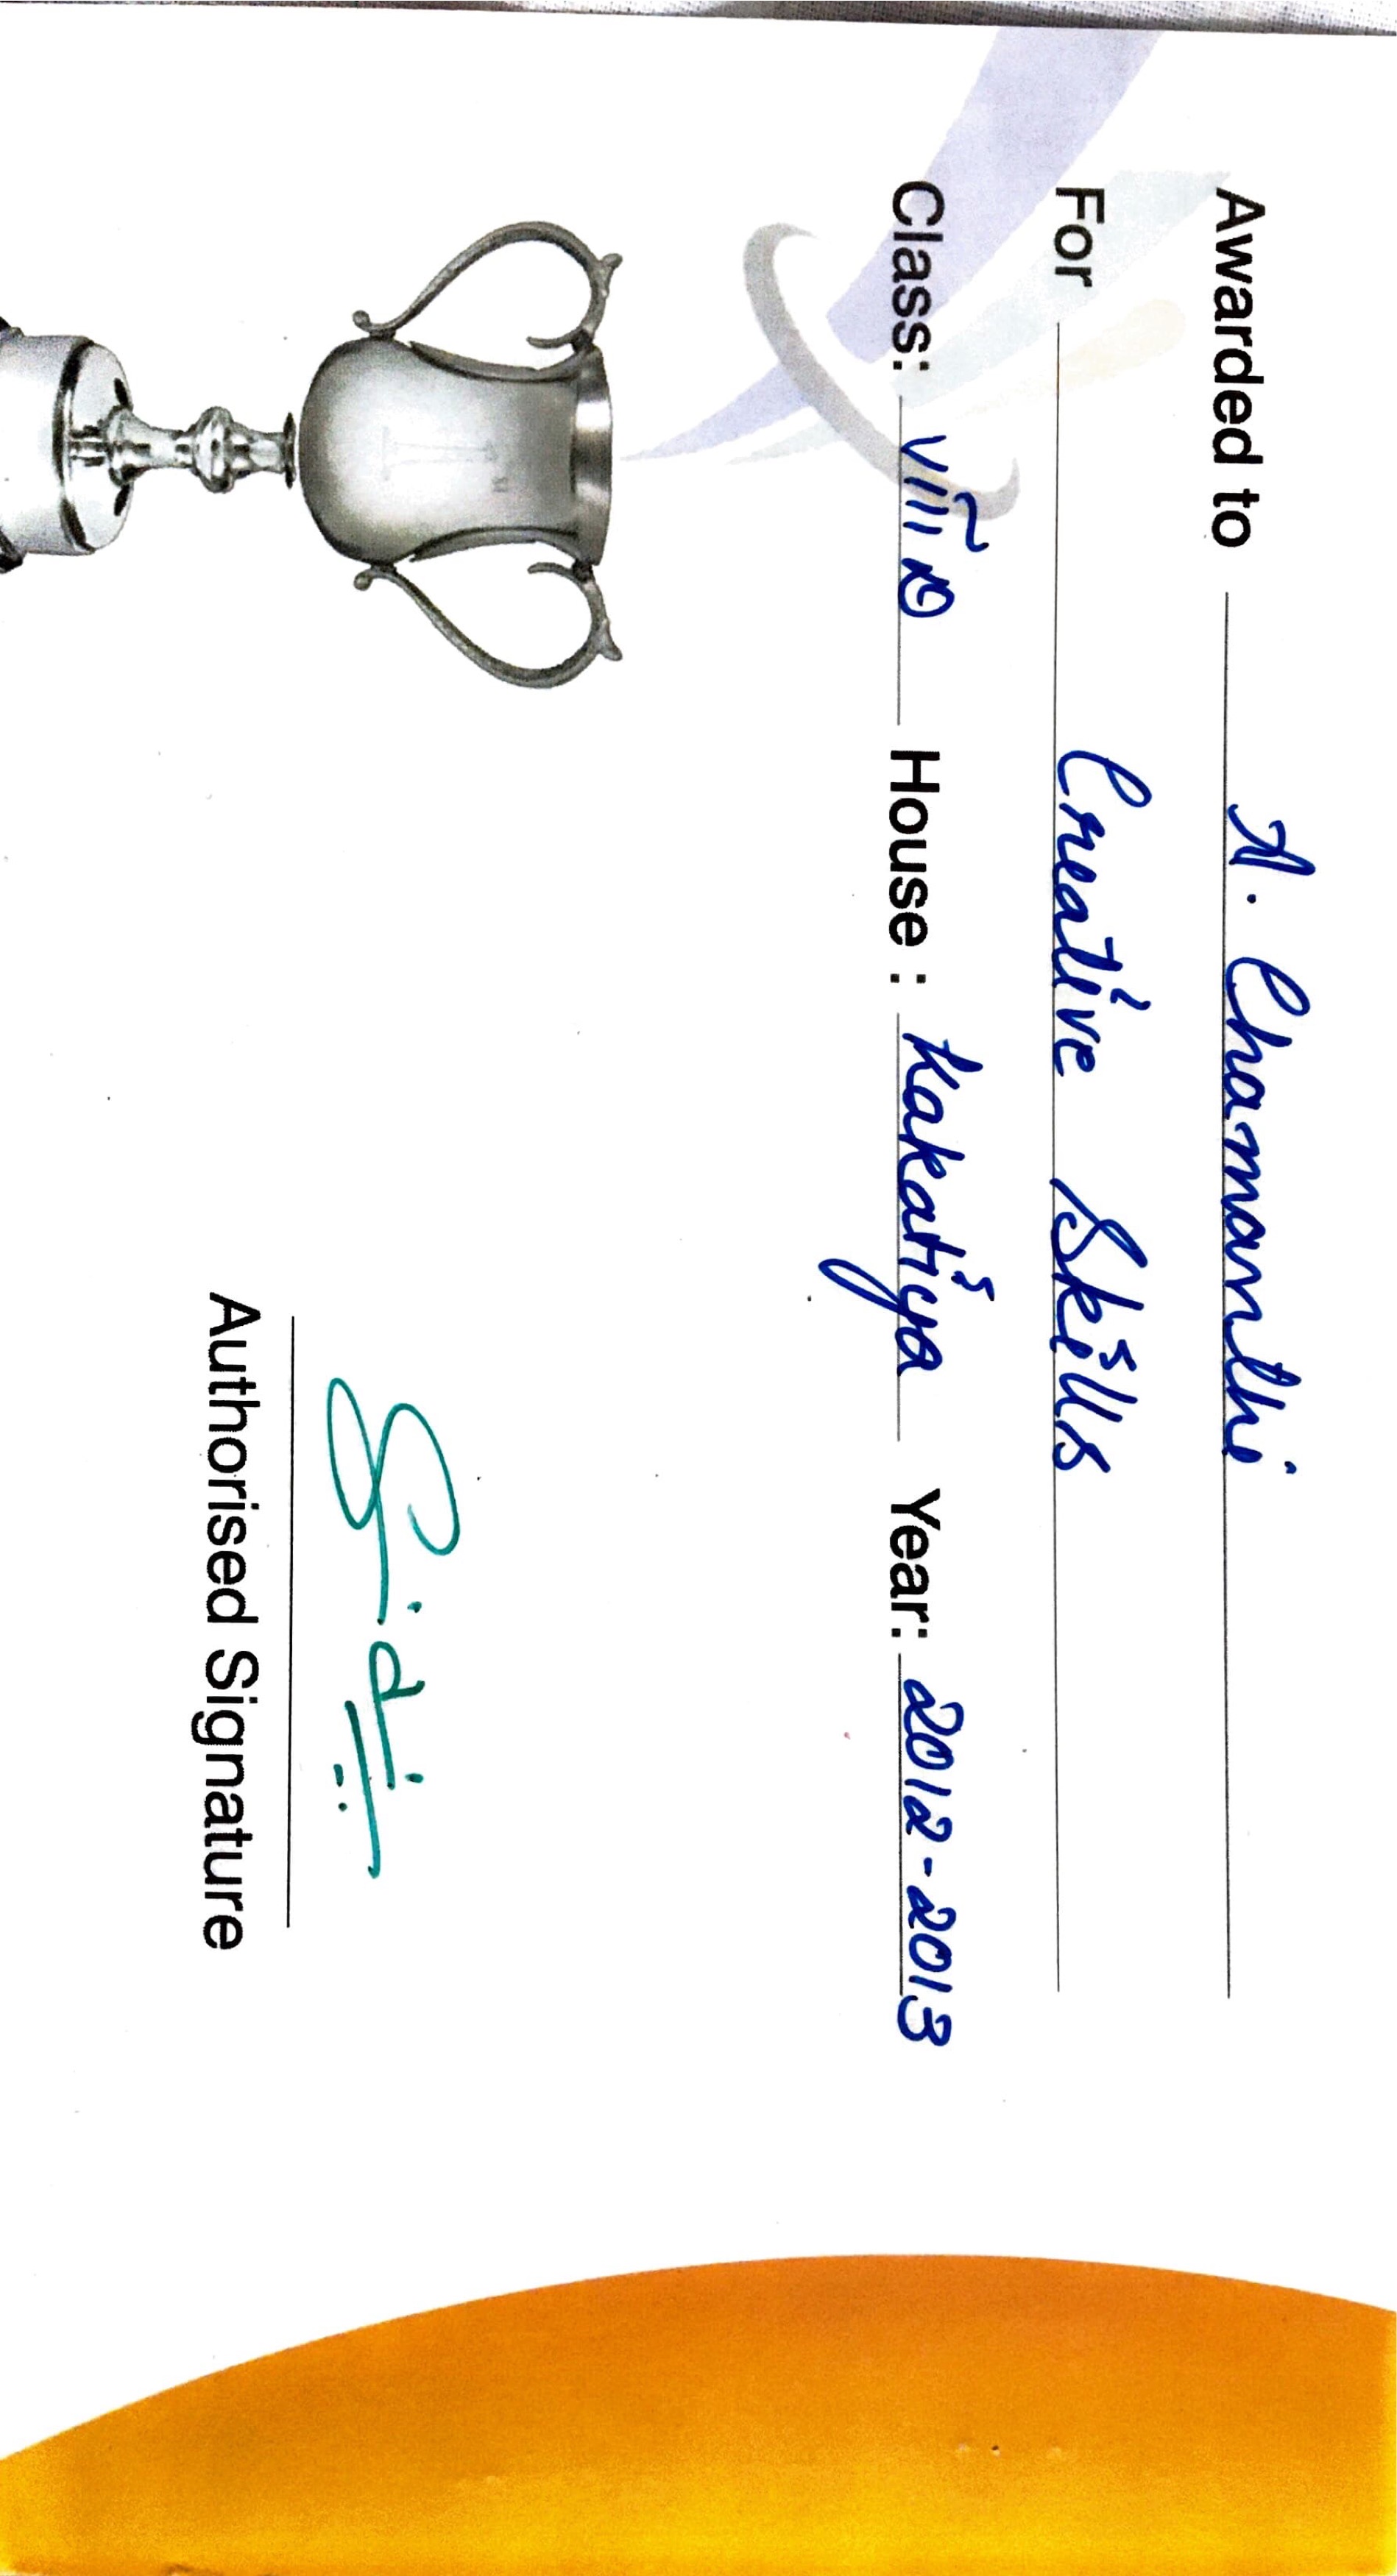 Awarded to A. Chamanthi
For Creative Skills
Class: VIII D House : Kakatiya Year: 2012-2013
Authorised Signature